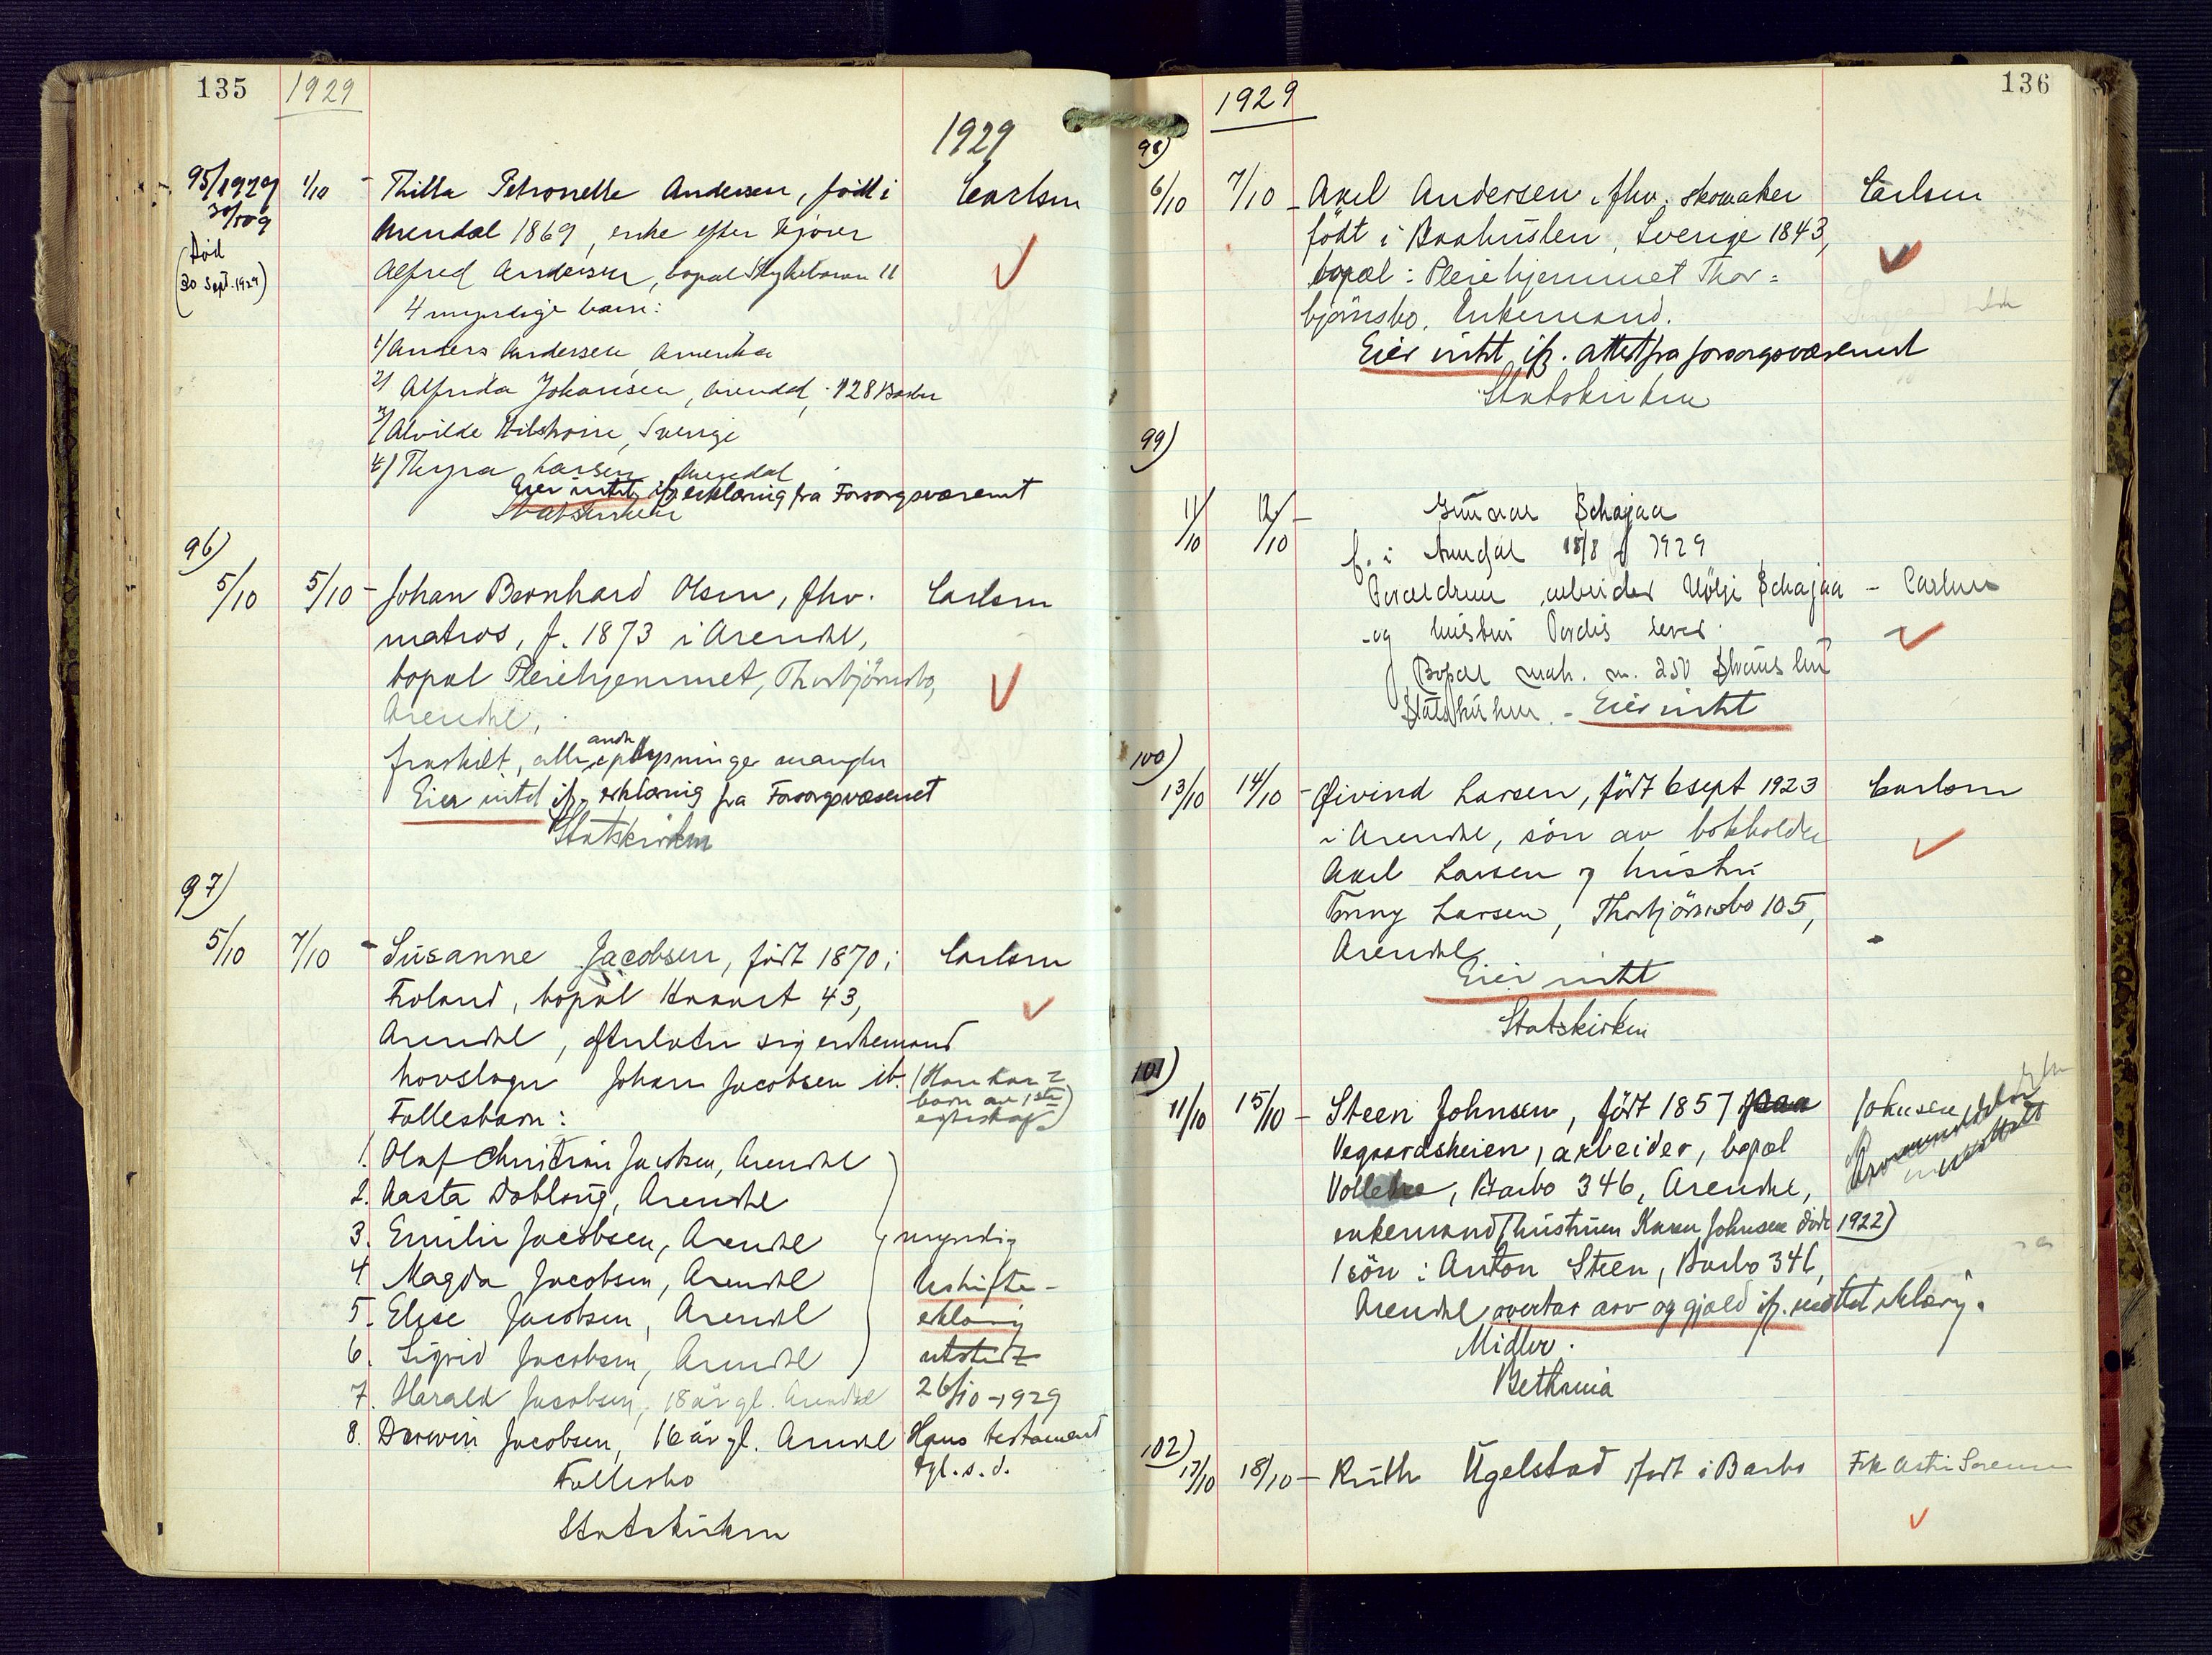 135 1929
1929
95/1929 1/10 - Thilla Petronelle Andersen, født i Carlsen
30/9 Arendal 1869, enke efter kjører
(Død 30 Sept. 1929) Alfred Andersen, bopæl 11
4 myndige barn:
1/ Anders Andersen, Amerika
2/ Alfrida Johansen, Arendal, 128 Barbu
3/ Alvilde, Sverige
4/ Thyra Larsen, Arendal
Eier intet ifg. erklæring fra Forsorgsvæsenet
Statskirken
96)
5/10 5/10 - Johan Bernhard Olsen, fhv. Carlsen
matros, f. 1873 i Arendal,
bopæl Pleiehjemmet, Thorbjørnsbo,
Arendal,
fraskilt, alle andre oplysninger mangler
Eier intet ifg. erklæring fra Forsorgsvæsenet
Statskirken
97)
5/10 7/10 - Susanne Jacobsen, født 1870 i Carlsen
Froland, bopæl 43,
Arendal, efterlater sig enkemand
hovslager Johan Jacobsen ib. (Han har 2
barn av 1ste
egteskap)
Fællesbarn:
1. Olaf Christian Jacobsen, Arendal
2. Aasta Dobloug, Arendal
3. Emilie Jacobsen, Arendal myndig
4. Magda Jacobsen, Arendal Uskifte-
5. Elise Jacobsen, Arendal erklæring
6. Sigrid Jacobsen, Arendal utstedt
7. Harald Jacobsen, 18 år gl. Arendal 26/10-1929
8. Jacobsen, 16 år gl. Arendal Hans testament
Fællesbo tgl. s. d.
Statskirken
136
1929
98)
6/10 7/10 - Axel Andersen, fhv. skomaker Carlsen
født i Baahuslen, Sverige 1843,
bopæl: Pleiehjemmet Thor=
bjørnsbo. Enkemand.
Eier intet ifg. attest fra forsorgsvæsenet
Statskirken
99)
11/10 12/10 - Gunnar Schajaa
f. i Arendal 18/8 1929
Forældrene, arbeider Schajaa - Carlsen
og hustru Tordis lever.
Bopæl matr. nr. 250
Statskirken. - Eier intet
100)
13/10 14/10 - Øivind Larsen, født 6 sept 1923 Carlsen
i Arendal, søn av bokholder
Axel Larsen og hustru
Fanny Larsen, Thorbjørnsbo 105,
Arendal
Eier intet
Statskirken
101)
11/10 15/10 - Steen Johnsen, født 1857 paa Johnsen
Vegaardsheien, arbeider, bopæl
Vollene, Barbo 346, Arendal,
enkemand (hustruen Karen Johnsen døde 1922)
1 søn: Anton Steen, Barbo 346,
Arendal, overtar arv og gjæld ifg. mottat erklæring.
Midler.
Bethania
102)
17/10 18/10 - Ruth Ugelstad født i Barbo Frk Sørensen